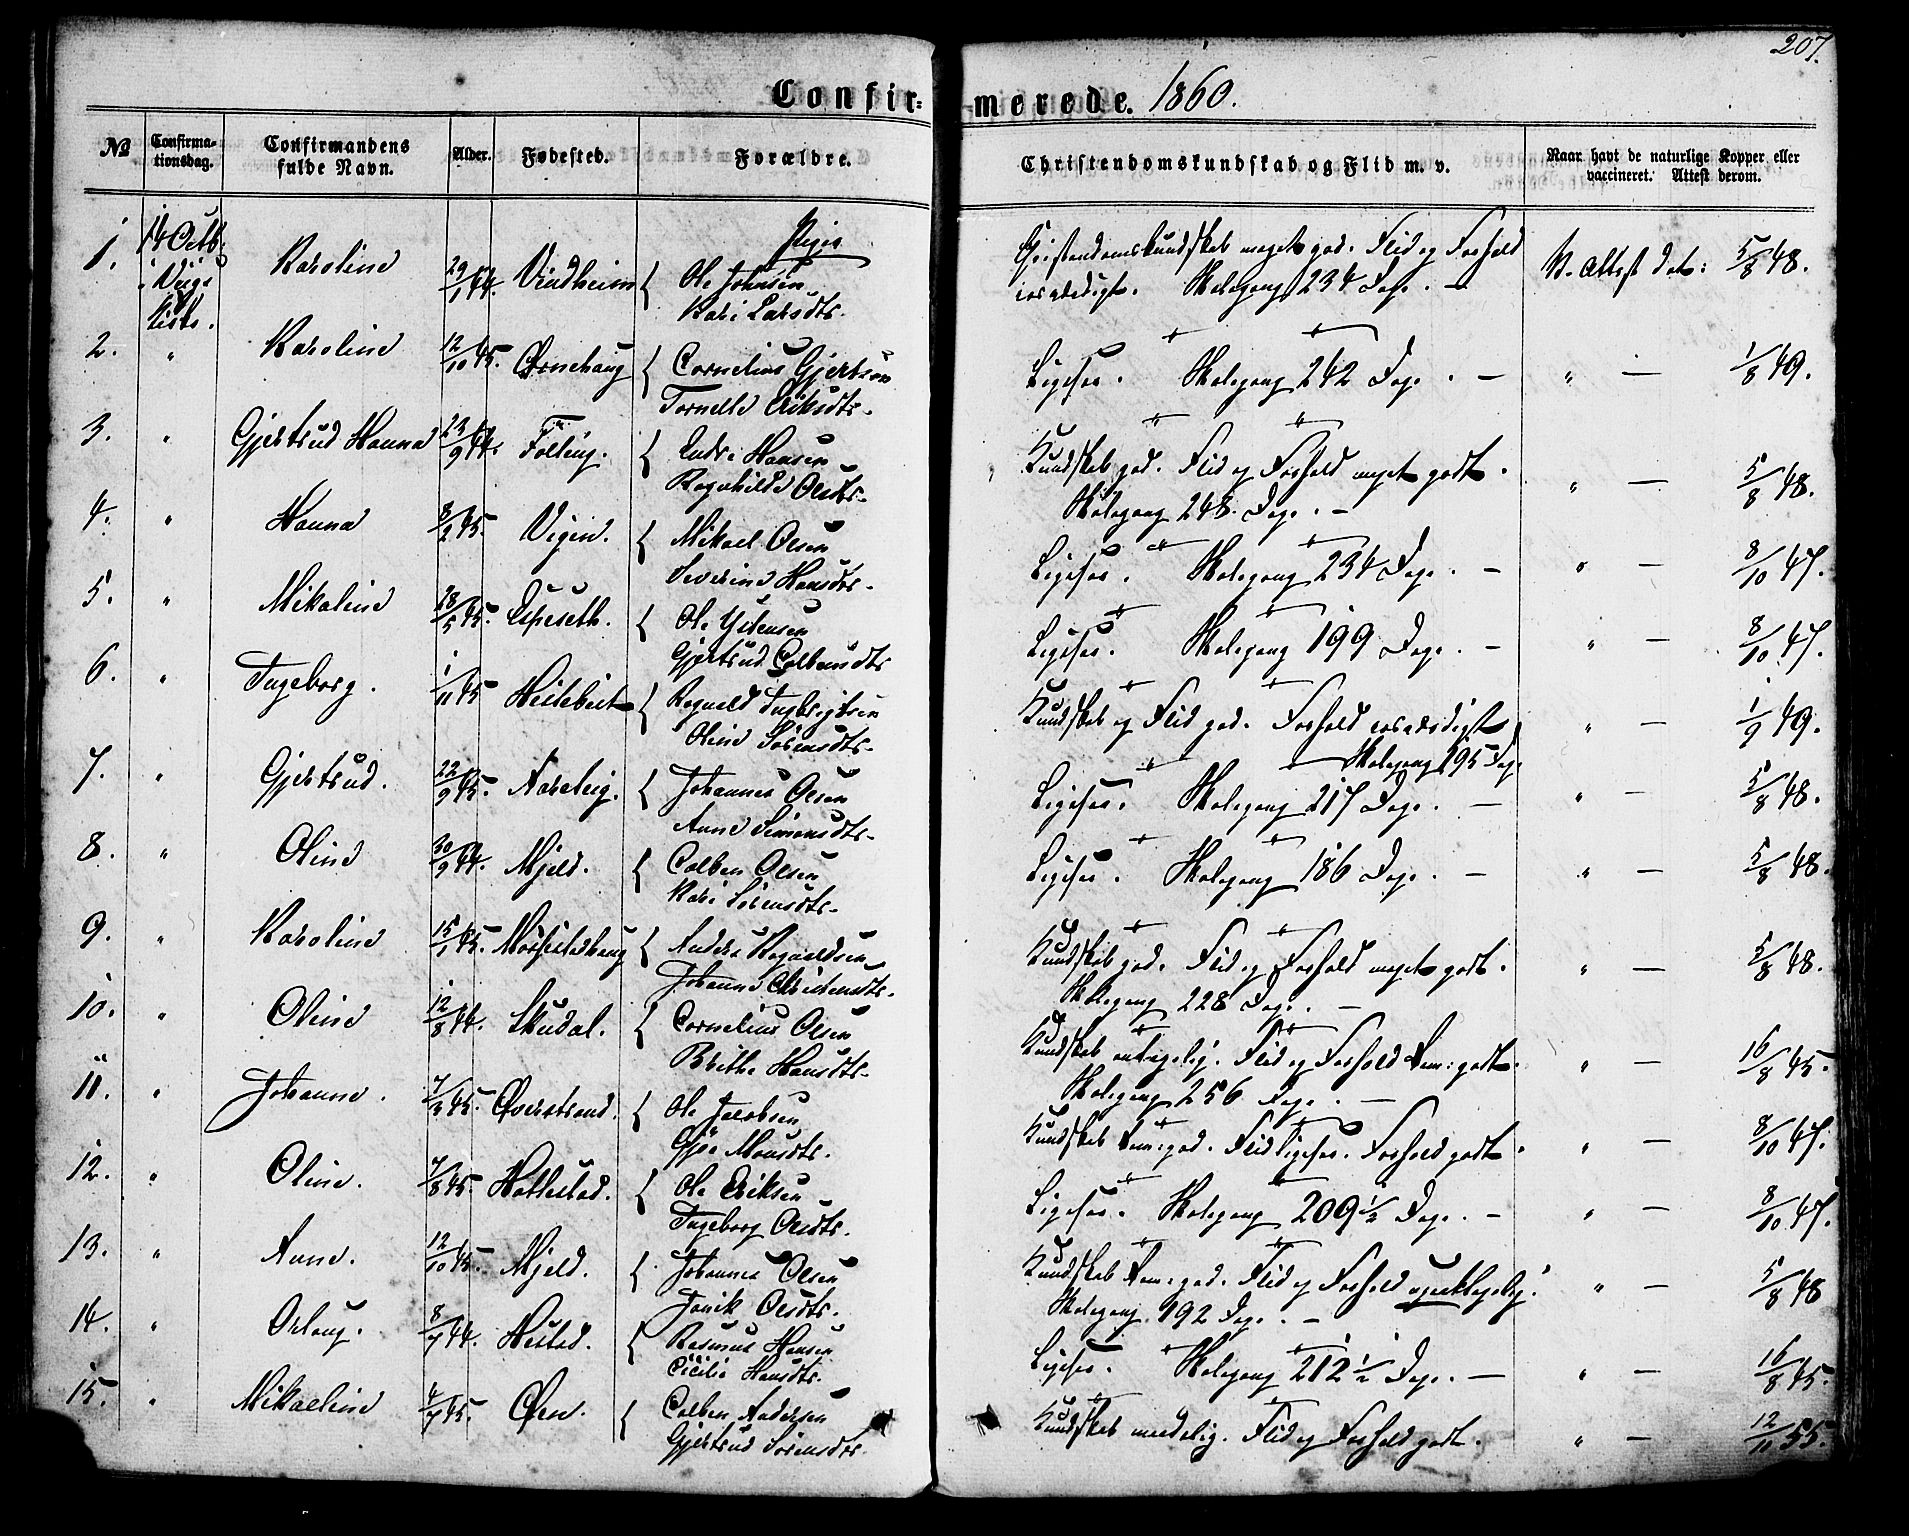 207.
Confir-merede. 1860.
№ Confirmationsdag. Confirmandens fulde Navn. Alder. Fødested. Forældre. Christendomskundskab og Flid m. v. Naar havt de naturlige Kopper eller vaccineret. Attest derom.
Piger
1. 14 Octb. i Karoline 29/1 44. Vindheim { Ole Johnsen Christendomskundskab meget god. Flid og Forhold V. Attest dat: 5/8 48.
Kari Larsdtr. Skolegang 234 Dage. —
2. " Karoline 12/10 45. Ørnehaug { Cornelius Gjertsen Ligesaa. Skolegang 242 Dage. — " — 1/8 49.
Eriksdtr.
3. " Gjertrud Hanna 23/9 44. { Endre Hansen Kundskab god. Flid og Forhold meget godt. " — 5/8 48.
Ragnhilde Olsdtr. Skolegang 248 Dage. —
4. " Hanna 8/2 45. { Mikael Olsen Ligesaa. Skolegang 234 Dage. — " — 8/10 47.
Severine Hansdtr.
5. " Mikaline 28/5 45. Espeseth. { Ole Ligesaa. Skolegang 199 Dage. — " — 8/10 47.
Gjertrud Colbensdtr.
6. " Ingeborg. 1/11 45 { Ragnald Kundskab og Flid god. Forhold " — 1/9 49.
Oline Sörensdtr. Skolegang 195 Dage
7. " Gjertrud. 22/9 45. { Johannes Olsen Ligesaa. Skolegang 217 Dage. — " — 5/8 48.
Anne Simensdtr.
8. " Oline 30/9 44. Mjeld. { Colben Olsen Ligesaa. Skolegang 186 Dage. — " — 5/8 48.
Kari Sörensdtr.
9. " Karoline 15/1 45. { Anders Ragnaldsen Kundskab god. Flid og Forhold meget godt. " — 5/8 48.
Johanne Christensdtr. Skolegang 228 Dage. —
10. " Oline 12/8 44. Skudal. { Cornelius Olsen Kundskab antagelig. Flid og Forhold tem: godt. " — 16/8 45.
Brithe Hansdtr. Skolegang 256 Dage. —
11. " Johanne. 7/3 45. Qverstrand. { Ole Jacobsen Kundskab tem: god. Flid ligesaa. Forhold godt. " — 8/10 47.
Monsdtr.
12. " Oline. 7/8 45. Hattestad. { Ole Eriksen Ligesaa. Skolegang 209½ Dage. — " — 8/10 47.
Ingeborg Olsdtr.
13. " Anne. 12/10 45. Mjeld. { Johannes Olsen Kundskab tem: god. Flid og Forhold " — 5/8 48
Olsdtr. Skolegang 192 Dage. —
14. " 8/7 44. Hestad. { Rasmus Hansen Ligesaa. Skolegang 212½ Dage. — " — 16/8 45.
Cicilie Hansdtr.
15. " Mikaeline 4/7 45. Øen. { Colben Andersen Kundskab maadelig. Flid og Forhold godt. " — 12/11 55.
Gjertrud Sörensdtr.